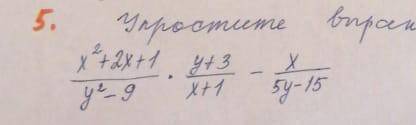 5. Упростите выраж
(x²+2x+1)/(y²-9) · (y+3)/(x+1) - x/(5y-15)